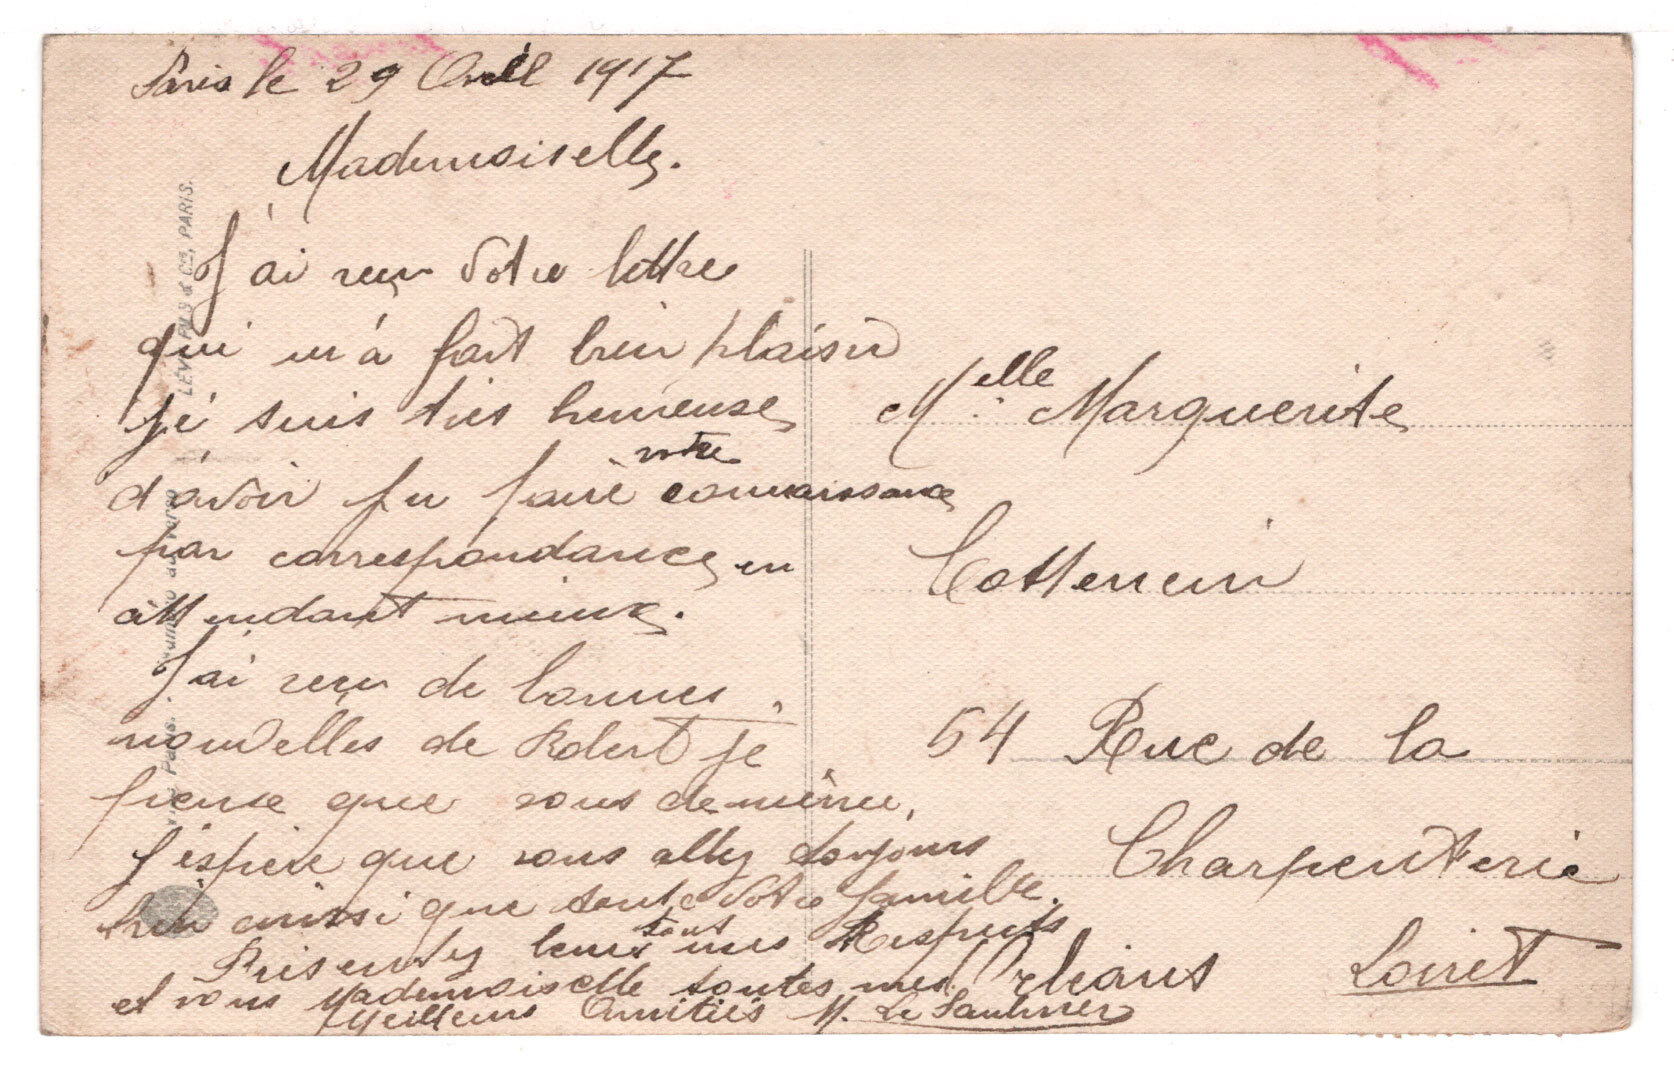 Paris le 29 Avril 1917
Mademoiselle.
J'ai reçu Votre lettre
qui m'a fait bien plaisir
je suis très heureuse
d'avoir pu faire votre connaissance
par correspondance, en
attendant mieux.
J'ai reçu de bonnes
nouvelles de Robert je
pense que vous de même,
j'espère que vous allez toujours
bien ainsi que toute Votre famille.
Présentez leurs tout mes Respects
et vous Mademoiselle toutes mes
Meilleurs Amitiés M. Le Saulnier
Melle Marguerite
Cottencin
54 Rue de la
Charpenterie
Orléans Loiret
LÉVY FILS & Cie, PARIS.